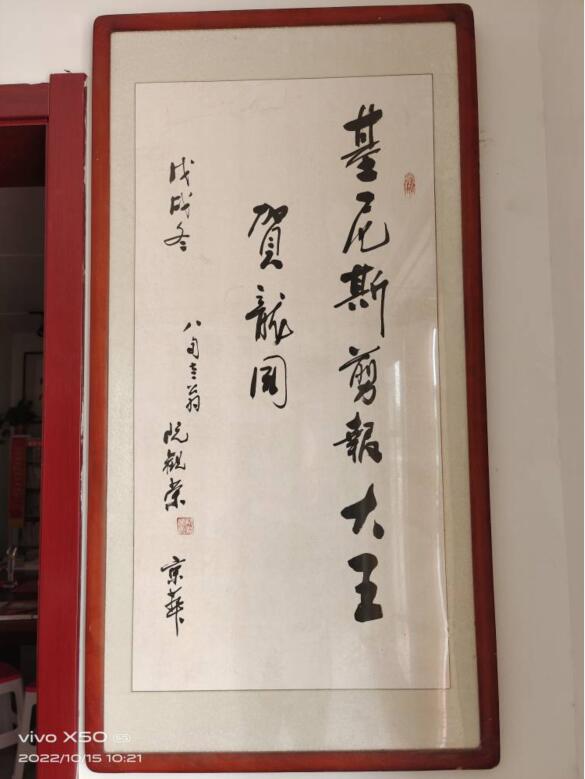 基尼斯剪報大王
賀龍
戊戌冬
八旬老翁 阮觀棠 京華
vivo X50 5G
2022/10/15 10:21